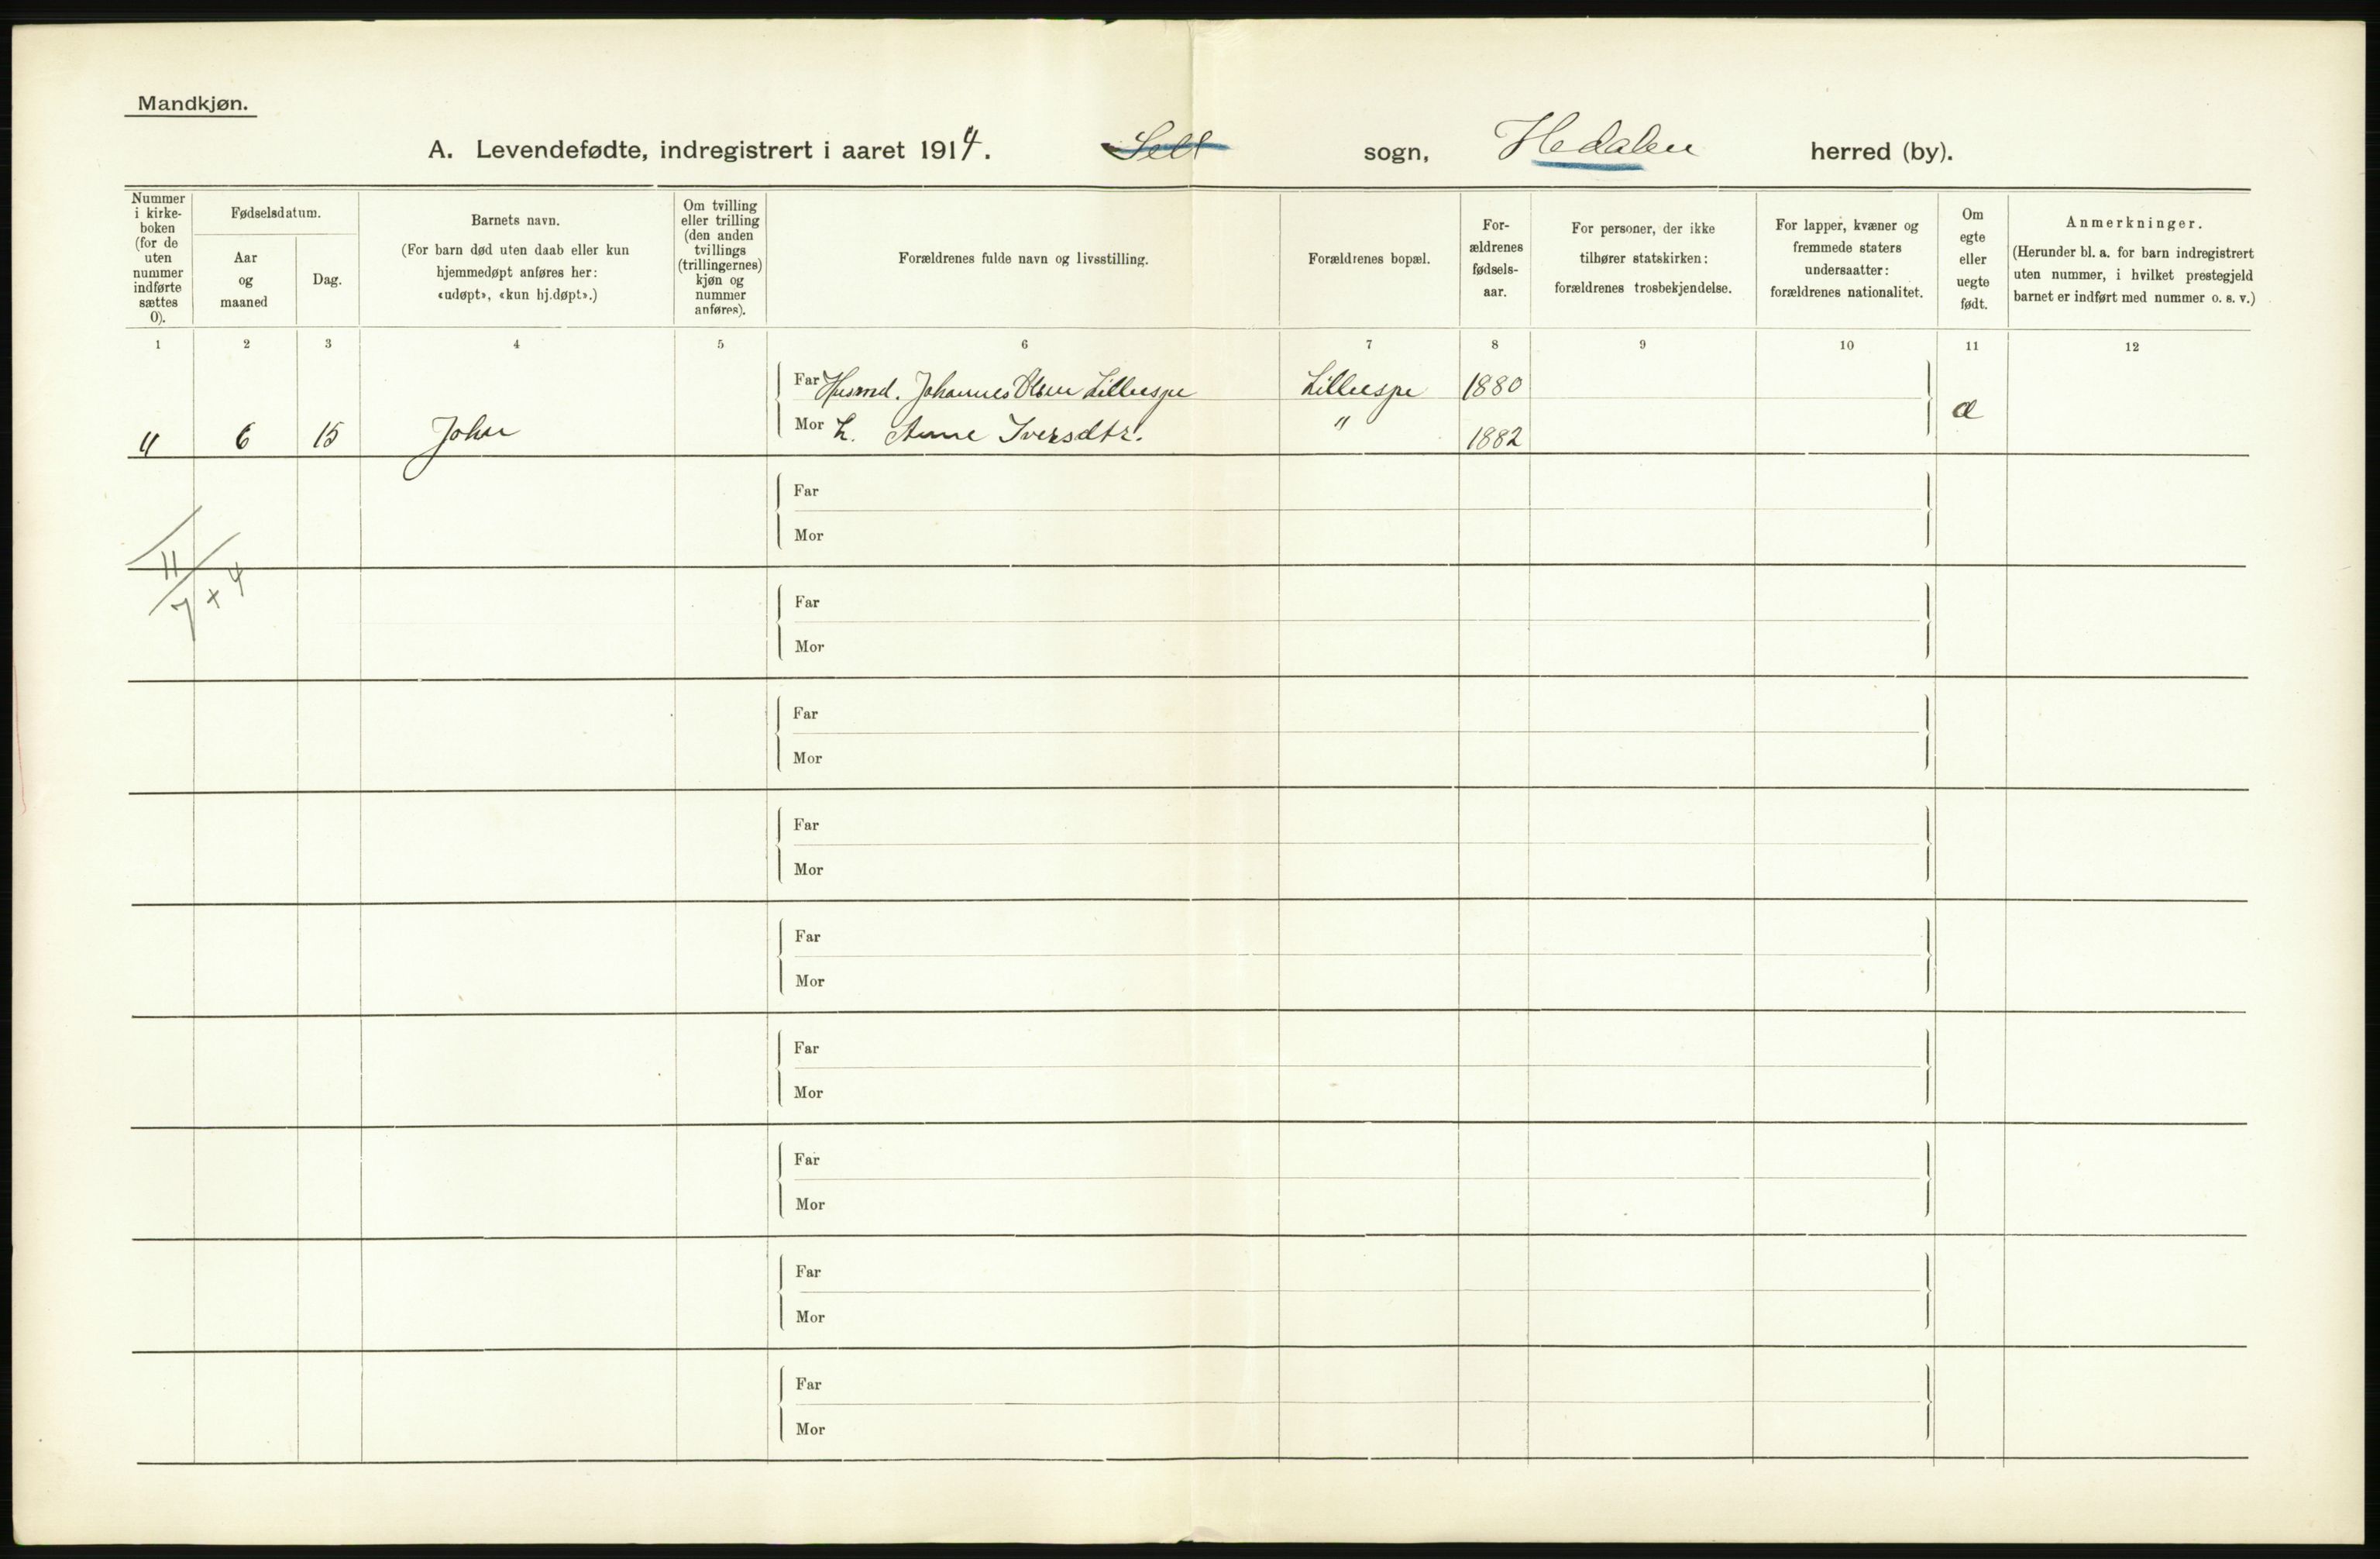 Mandkjøn.
A. Levendefødte, indregistrert i aaret 1914. Sell sogn, Hedalen herred (by).
Nummer i kirke- boken (for de uten nummer indførte sættes 0).
Fødselsdatum.
Aar og maaned
Dag.
Barnets navn.
(For barn død uten daab eller kun
hjemmedøpt anføres her:
«udøpt», «kun hj.døpt».)
Om tvilling
eller trilling
(den anden
tvillings
(trillingernes)
kjøn og
nummer
anføres).
Forældrenes fulde navn og livsstilling.
Forældrenes bopæl.
For-
ældrenes
fødsels-
aar.
For personer, der ikke
tilhører statskirken:
forældrenes trosbekjendelse.
For lapper, kvæner og
fremmede staters
undersaatter:
forældrenes nationalitet.
Om
egte
eller
uegte
født.
Anmerkninger.
(Herunder bl. a. for barn indregistrert
uten nummer, i hvilket prestegjeld
barnet er indført med nummer o. s. v.)
1 2 3 4 5 6 7 8 9 10 11 12
Far Husmd. Johannes Olsen Lilluspe Lilluspe 1880
4 6 15 John Mor h. Anne Iversdtr. " 1882 æ
Far
Mor
11
7 + 4
Far
Mor
Far
Mor
Far
Mor
Far
Mor
Far
Mor
Far
Mor
Far
Mor
Far
Mor